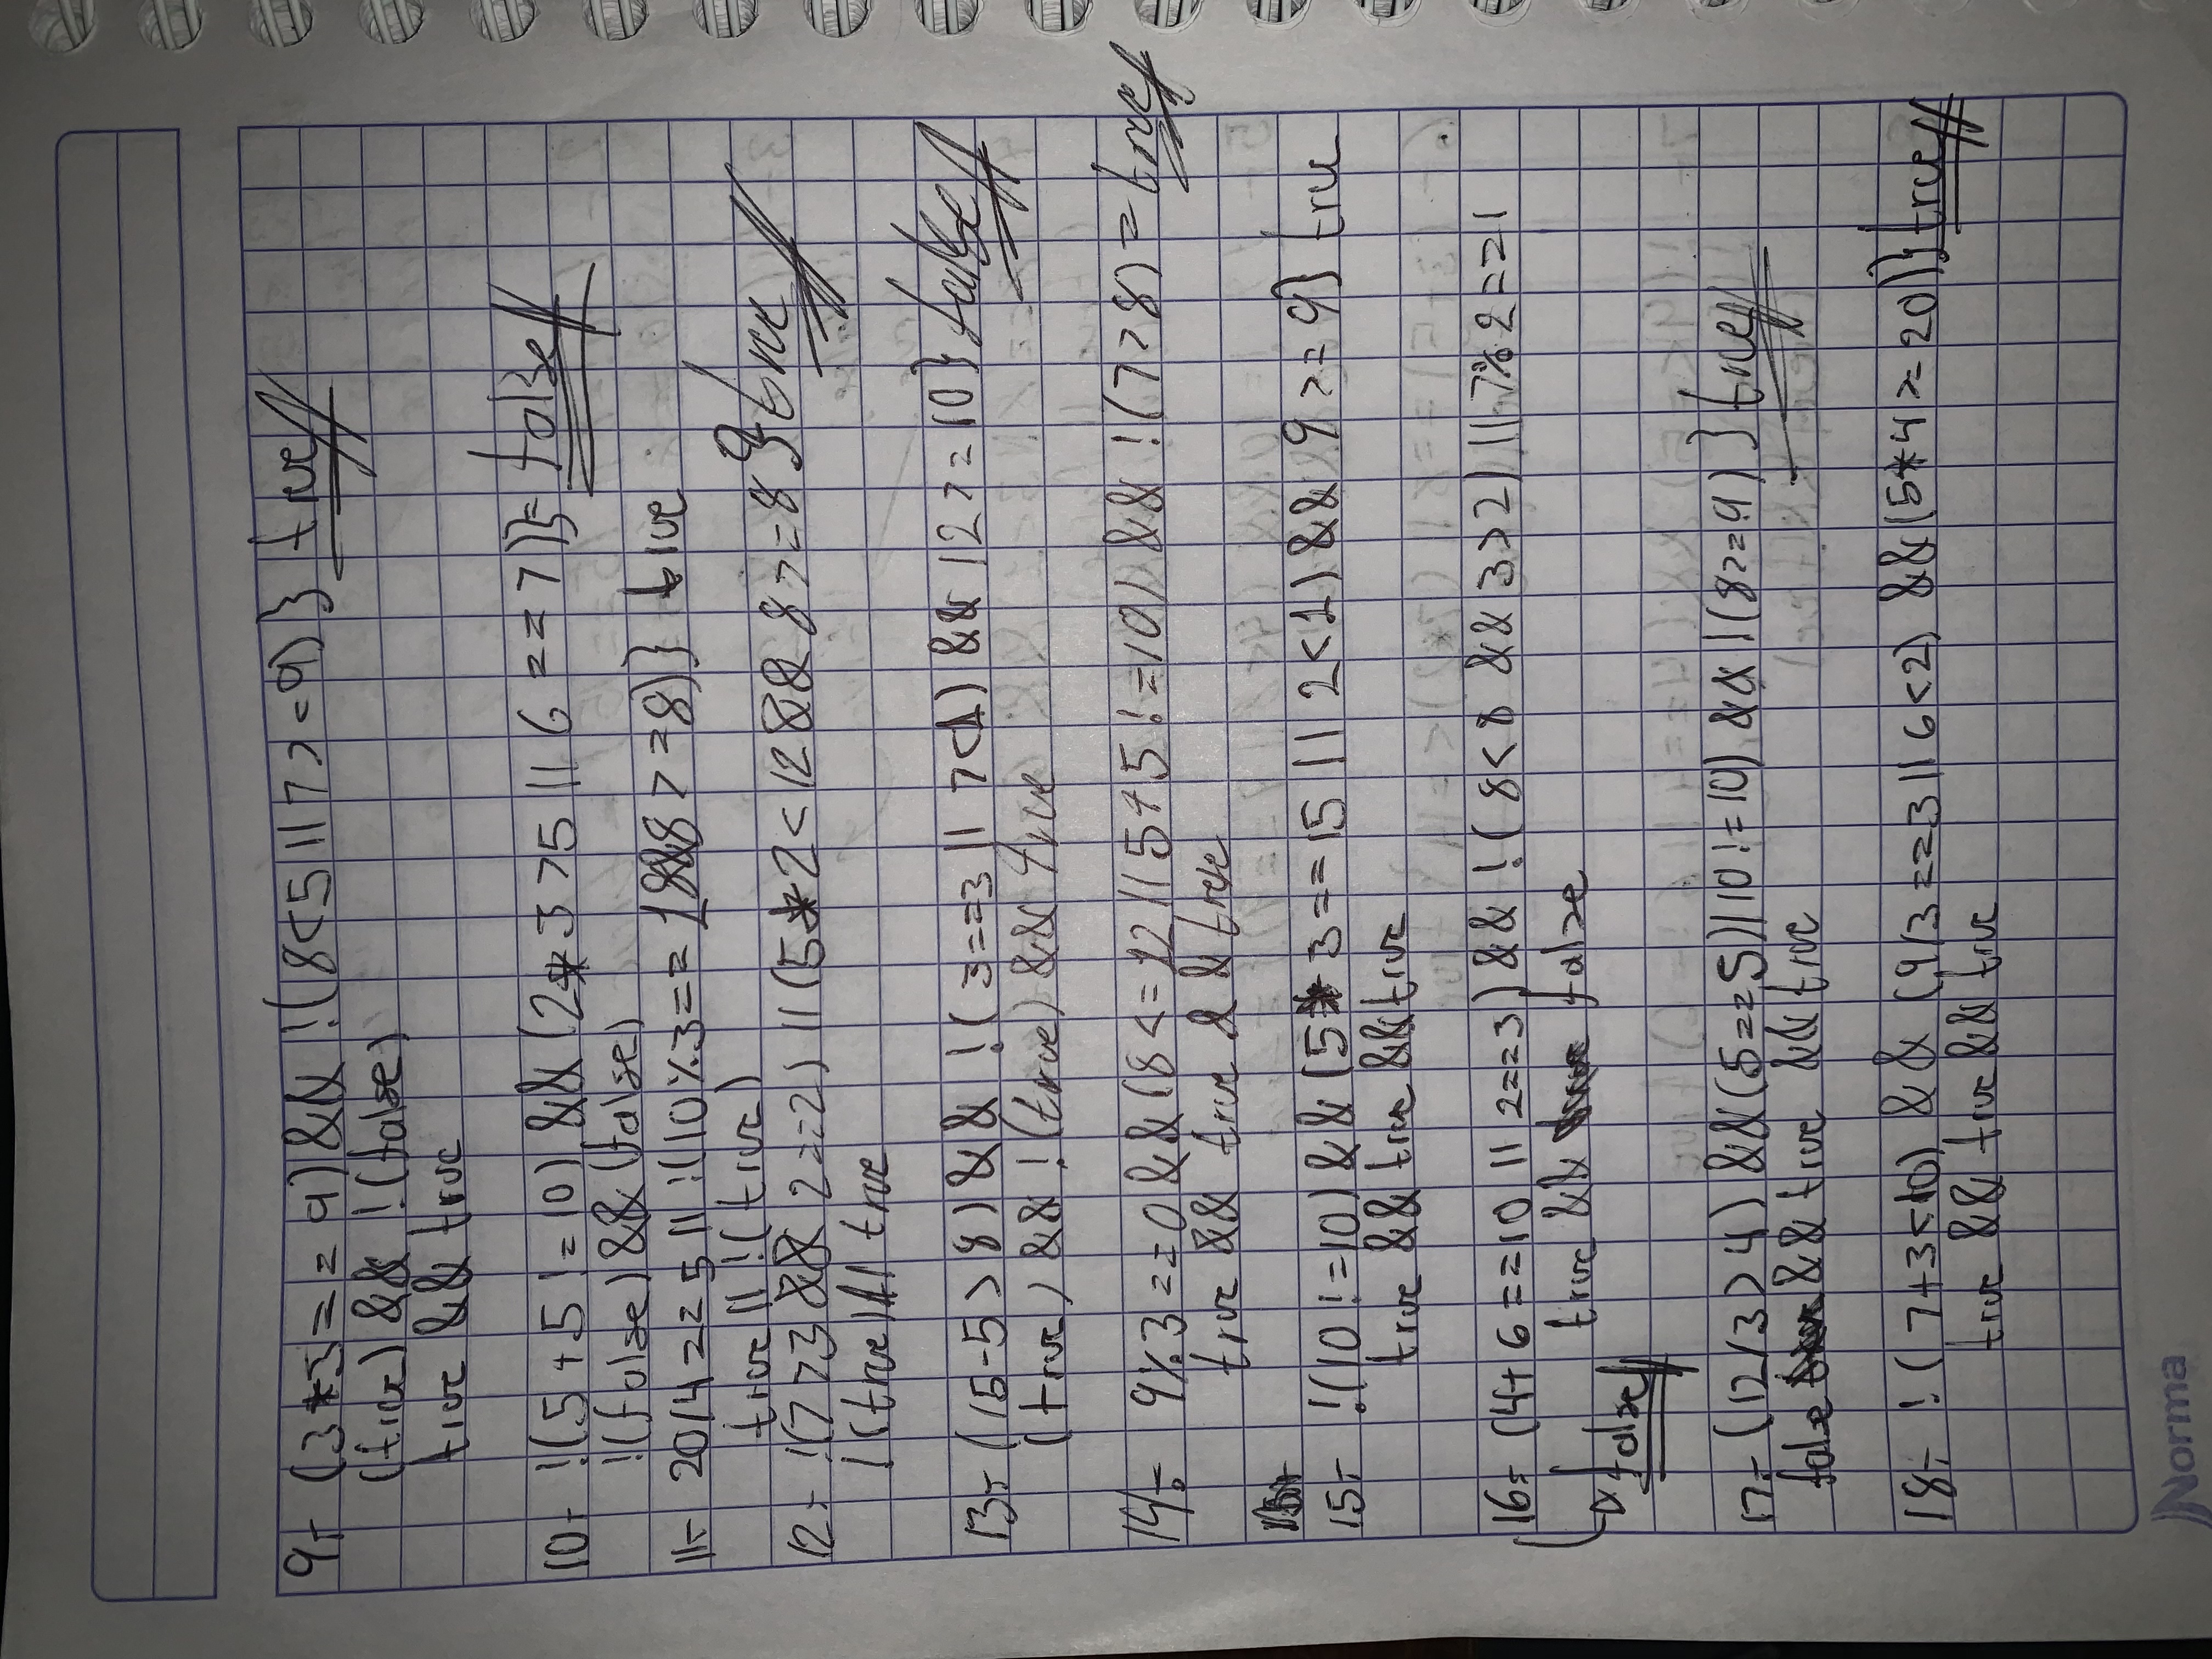 9.- (3*3 == 9) && !(8<5 || 7>=9)} true
(true) && !(false)
true && true
10.- !(5+5 != 10) && (2*3 >5 || 6 == 7)}= false
!(false) && (false)
11.- 20/4 == 5 || !(10%3 == 1 && 8 >= 8)} true
true || !(true)
12.- !(7>3 && 2==2) || (5*2 < 12 && 8 >= 8} true
!(true) || true
13.- (15-5 > 8) && !(3==3 || 7<1) && 12 >= 10} false
(true) && !(true) && true
14.- 9%3 == 0 && (8 <= 12 || 5+5 != 10) && !(7>8) = true
true && true && true
15.- !(10 != 10) && (5*3 == 15 || 2<1) && 9 >= 9} true
true && true && true
16.- (4+6 == 10 || 2==3) && !(8<8 && 3>2) || 7%2 == 1
true && false
false
17.- (12/3 > 4) && (5==5) || 10 != 10) && !(8>=9) } true
false && true && true
18.- !(7+3<10) && (9/3 == 3 || 6<2) && (5*4 >= 20)} true
true && true && true
Norma